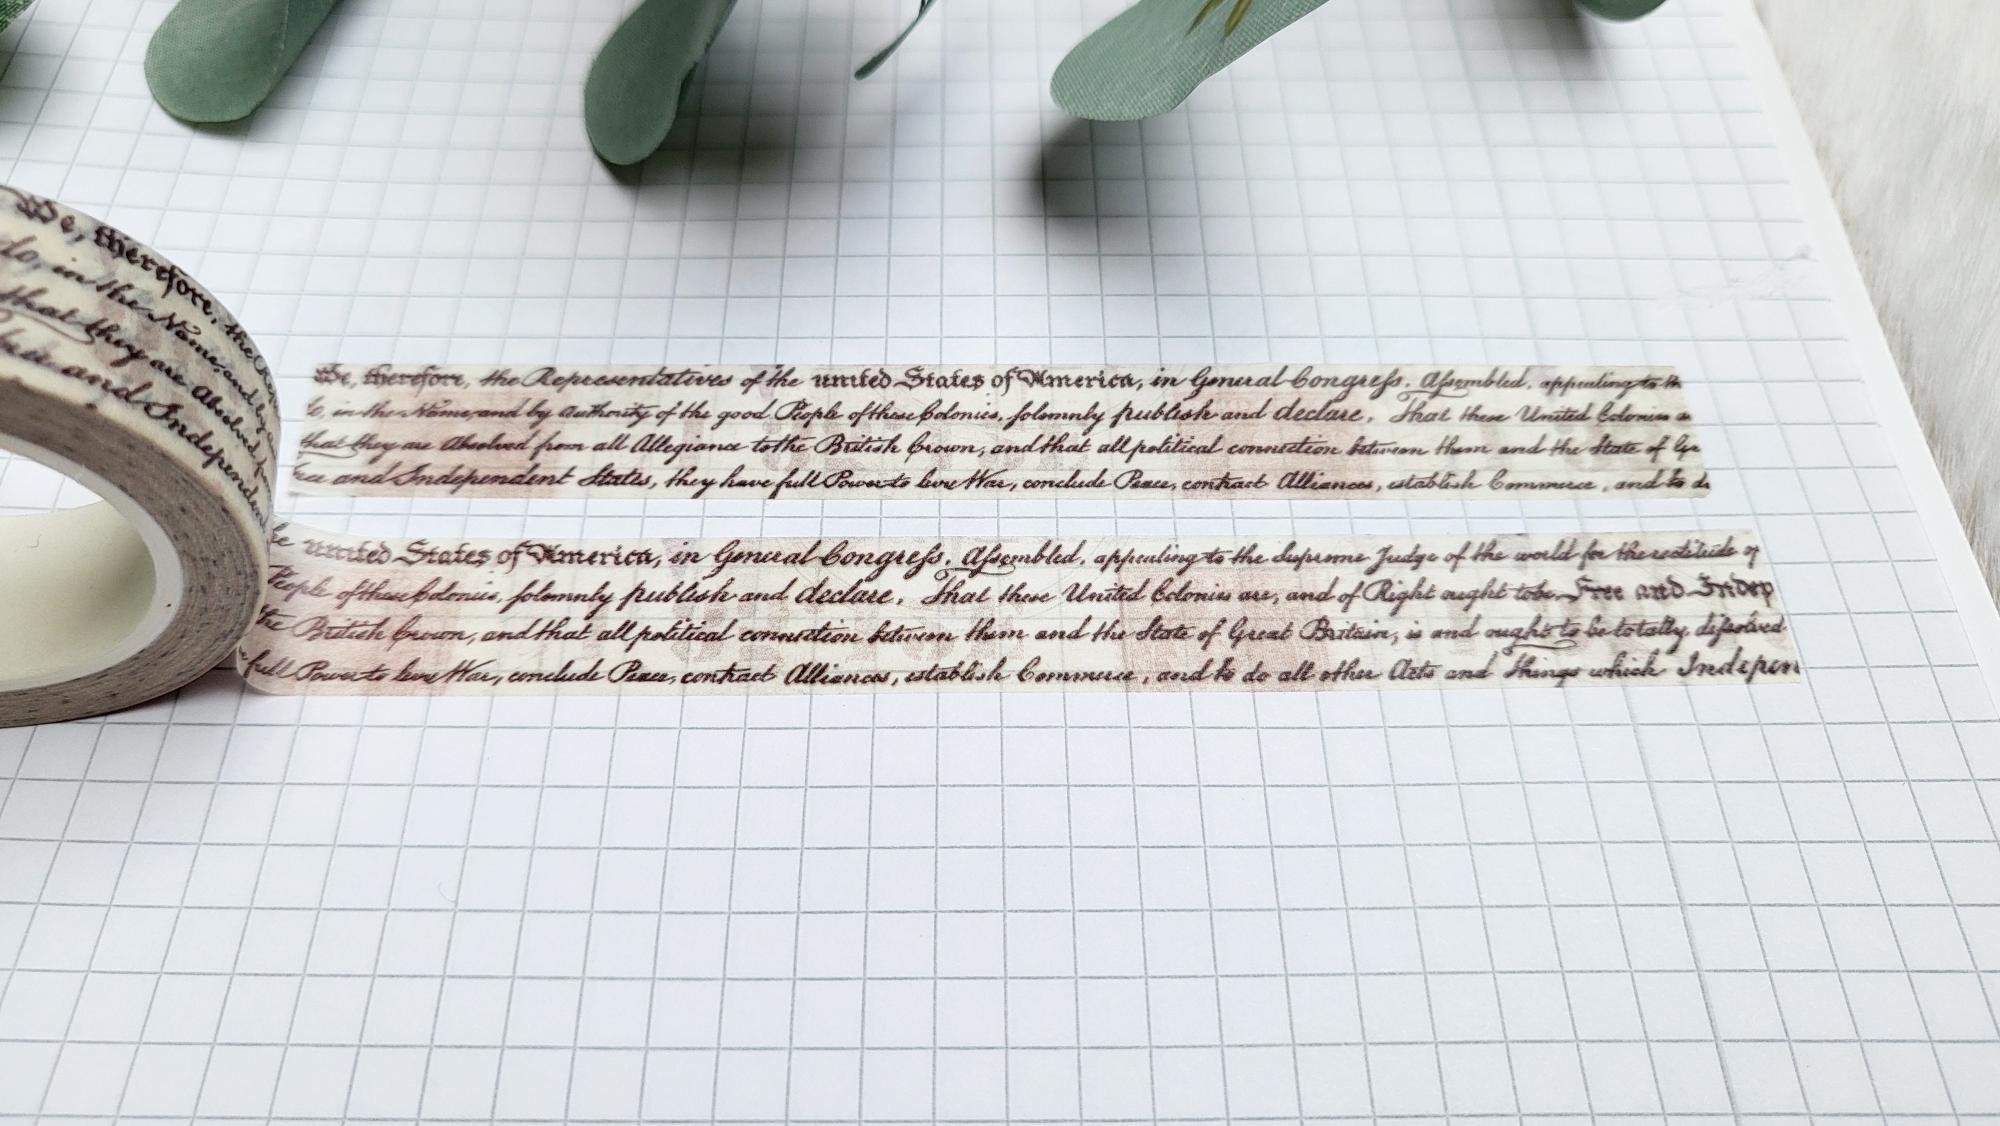 We, therefore, the
do, in the Name, and by
that they are Absolved from
and Independent
We, therefore, the Representatives of the united States of America, in General Congreſs, Aſsembled, appealing to th
o, in the Name, and by authority of the good People of these Colonies, ſolemnly publish and declare, That these United Colonies a
that they are Absolved from all Allegiance to the British Crown, and that all political connection between them and the State of Gre
ree and Independent States, they have full Power to levy War, conclude Peace, contract Alliances, establish Commerce, and to do
he united States of America, in General Congreſs, Aſsembled, appealing to the Supreme Judge of the world for the rectitude of
People of these Colonies, ſolemnly publish and declare, That these United Colonies are, and of Right ought to be Free and Indep
the British Crown, and that all political connection between them and the State of Great Britain, is and ought to be totally diſsolved
full Power to levy War, conclude Peace, contract Alliances, establish Commerce, and to do all other Acts and things which Indepen